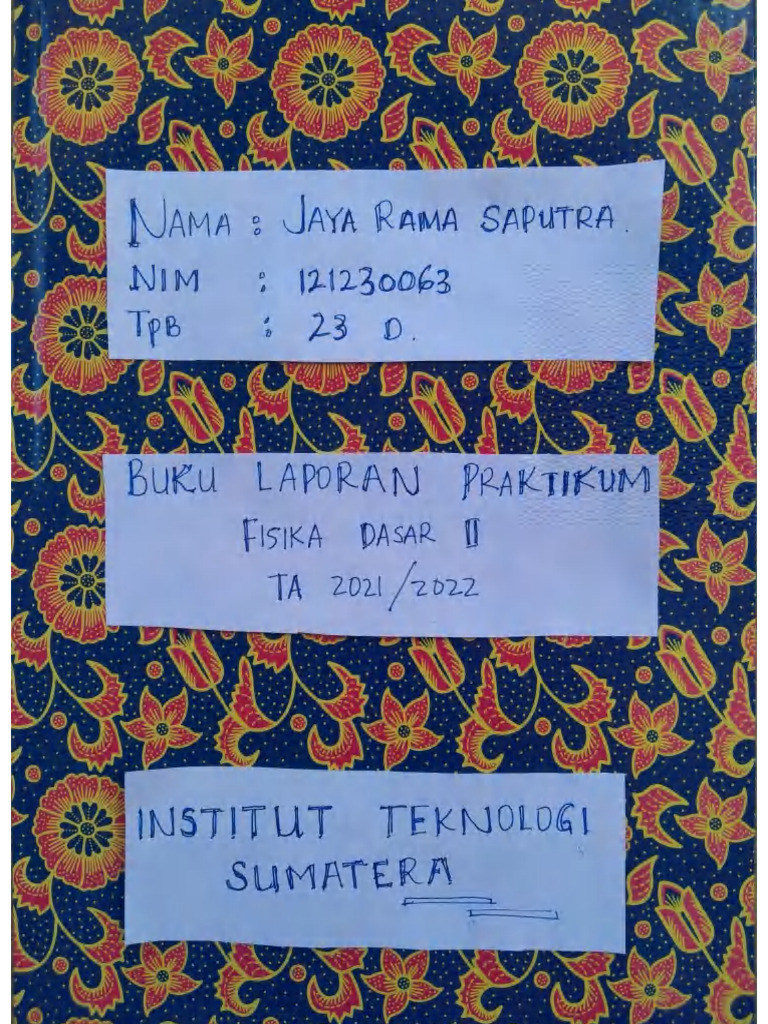 NAMA : JAYA RAMA SAPUTRA.
NIM : 121230063
TPB : 23 D.
BUKU LAPORAN PRAKTIKUM
FISIKA DASAR II
TA 2021/2022
INSTITUT TEKNOLOGI
SUMATERA